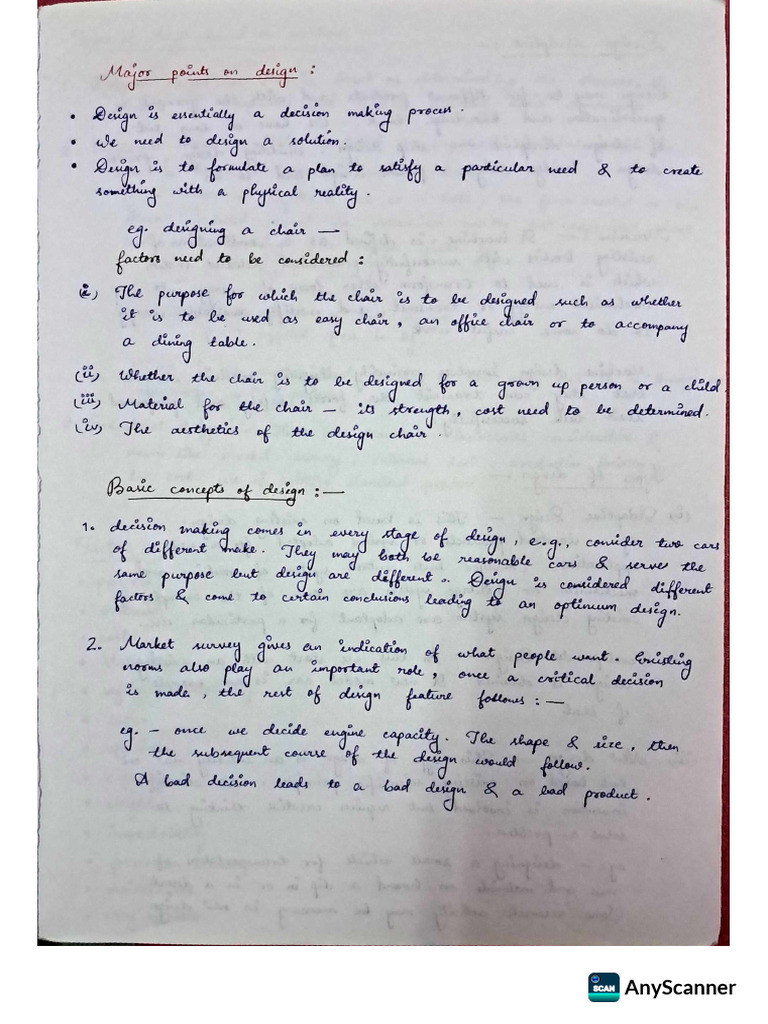 Major points on design :
• Design is essentially a decision making process.
• We need to design a solution.
• Design is to formulate a plan to satisfy a particular need & to create
something with a physical reality.
eg. designing a chair —
factors need to be considered :
(i) The purpose for which the chair is to be designed such as whether
it is to be used as easy chair, an office chair or to accompany
a dining table.
(ii) Whether the chair is to be designed for a grown up person or a child.
(iii) Material for the chair — its strength, cost need to be determined.
(iv) The aesthetics of the design chair.
Basic concepts of design :—
1. decision making comes in every stage of design, e.g., consider two cars
of different make. They may both be reasonable cars & serve the
same purpose but design are different. Design is considered different
factors & come to certain conclusions leading to an optimum design.
2. Market survey gives an indication of what people want. Existing
norms also play an important role, once a critical decision
is made, the rest of design feature follows :—
eg. — once we decide engine capacity. The shape & size, then
the subsequent course of the design would follow.
A bad decision leads to a bad design & a bad product.
SCAN AnyScanner